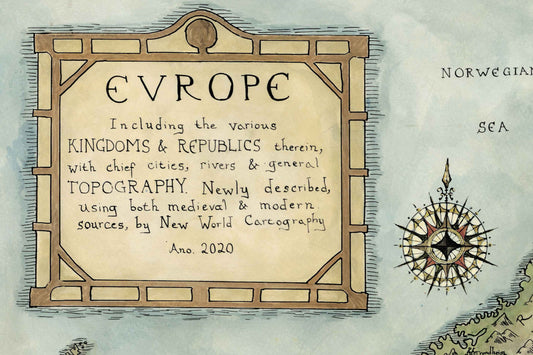 EVROPE
Including the various
KINGDOMS & REPUBLICS therein,
with chief cities, rivers & general
TOPOGRAPHY. Newly described,
using both medieval & modern
sources, by New World Cartography
Ano. 2020
NORWEGIAN
SEA